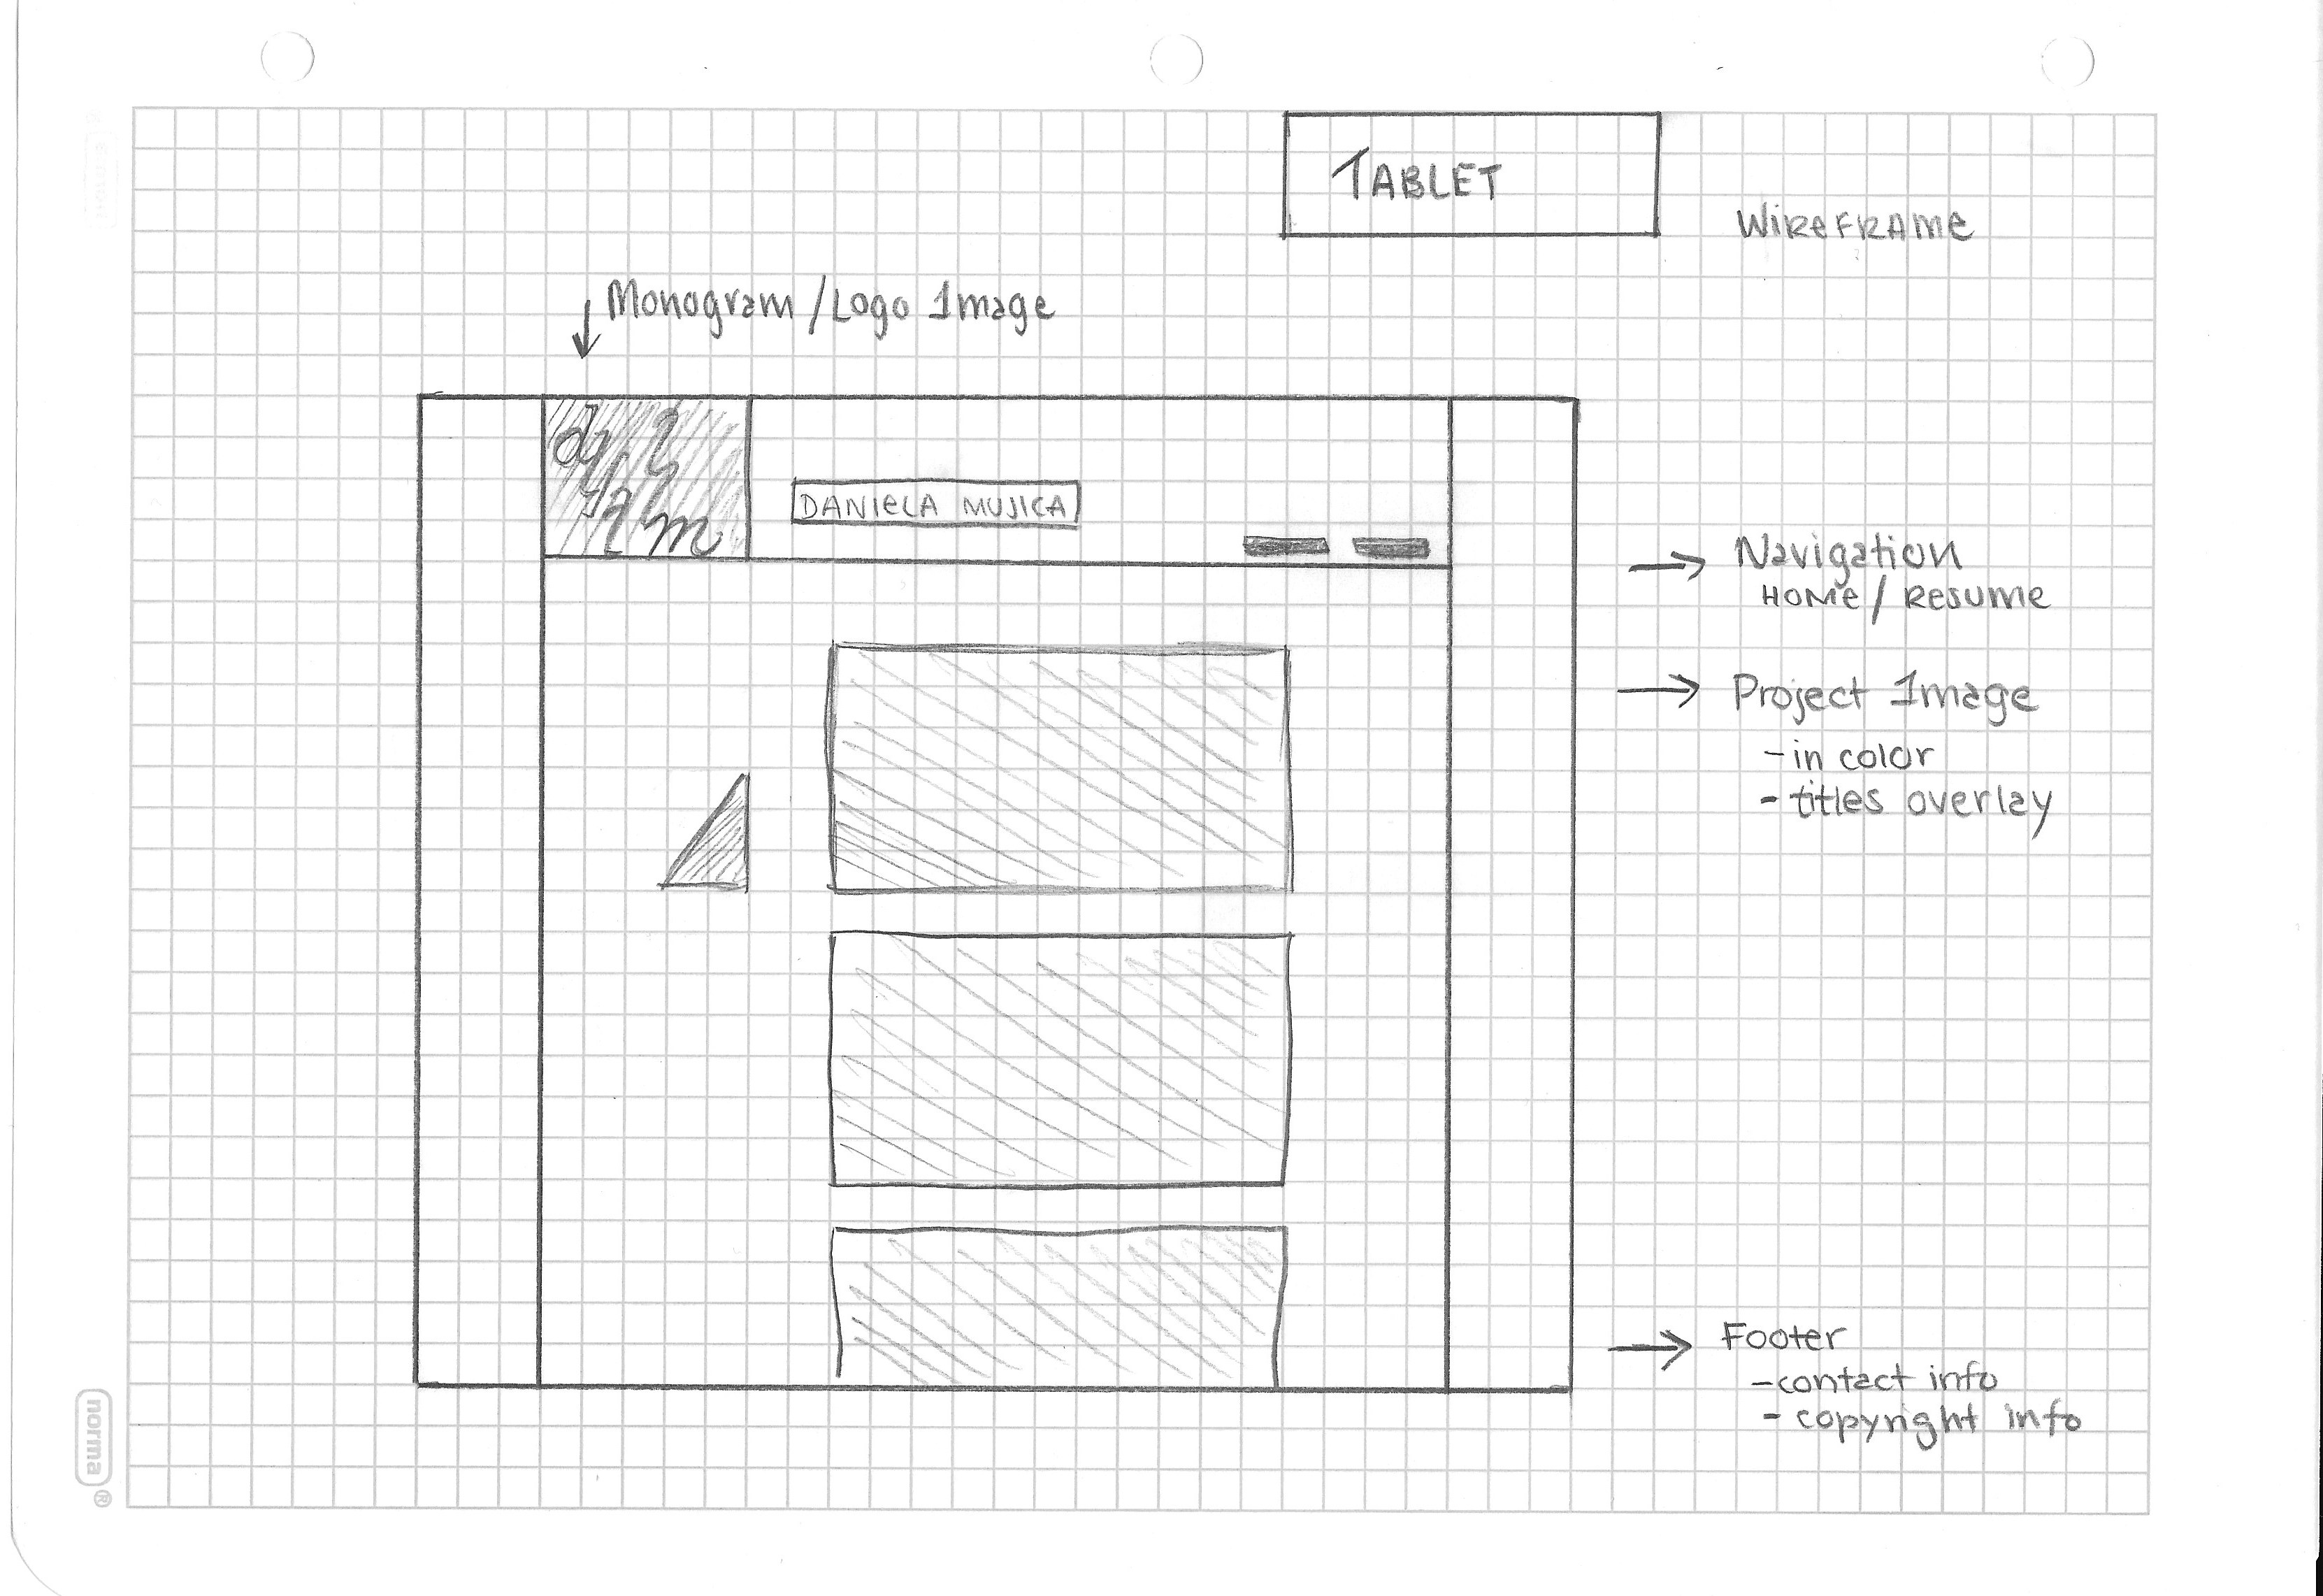 TABLET
WIREFRAME
Monogram / Logo Image
DANIELA MUJICA
Navigation
HOME / RESUME
Project Image
- in color
- titles overlay
Footer
- contact info
- copyright info
norma®